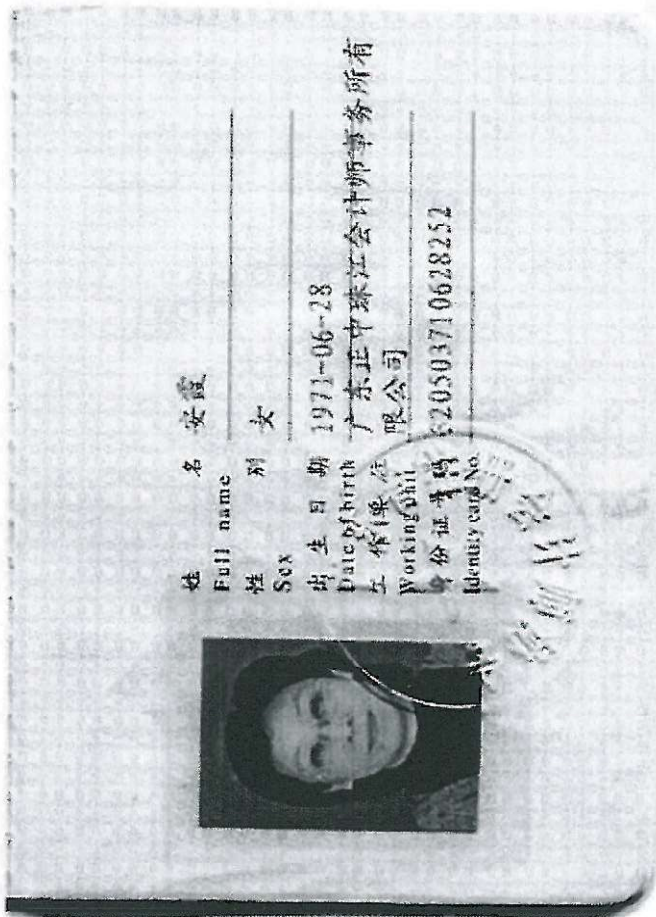 姓名 安霞
Full name
性别 女
Sex
出生日期 1971-06-28
Date of birth
工作单位 广东正中珠江会计师事务所有
限公司
Working Unit
身份证号码 620503710628252
Identity card No.